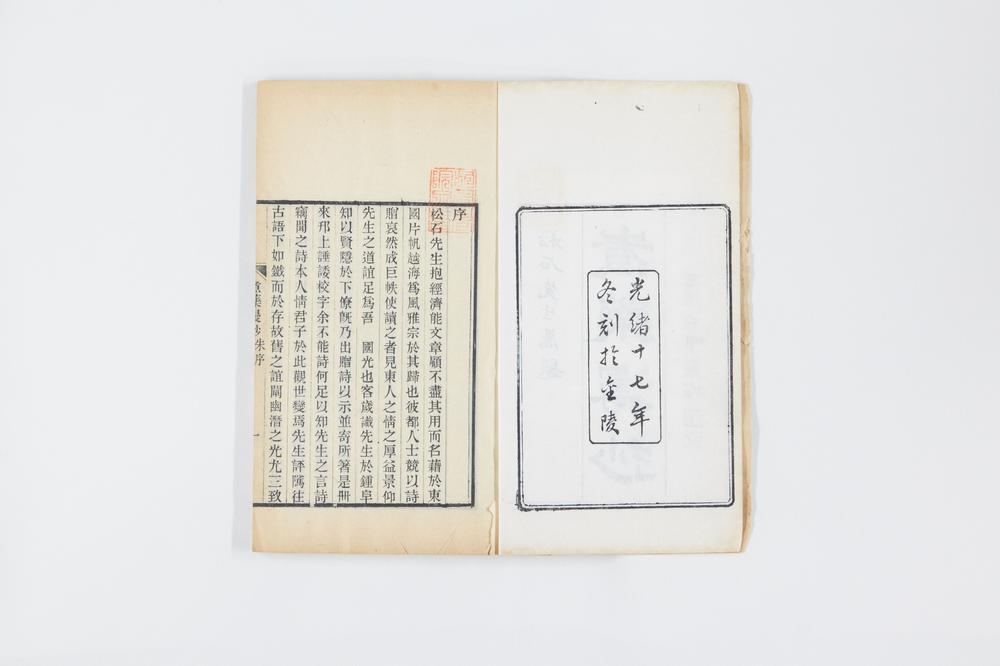 光緒十七年
冬刻於金陵
序
松石先生抱經濟能文章顧不盡其用而名藉於東
國片帆越海爲風雅宗於其歸也彼都人士競以詩
贈裒然成巨帙使讀之者見東人之情之厚益景仰
先生之道誼足爲吾 國光也客歲識先生於鍾阜
知以賢隱於下僚旣乃出贈詩以示並寄所著是冊
來邗上諈諉校字余不能詩何足以知先生之言詩
竊聞之詩本人情君子於此觀世變焉先生評隲往
古語下如鐵而於存故舊之誼闡幽潛之光尤三致
煑藥漫抄朱序
一